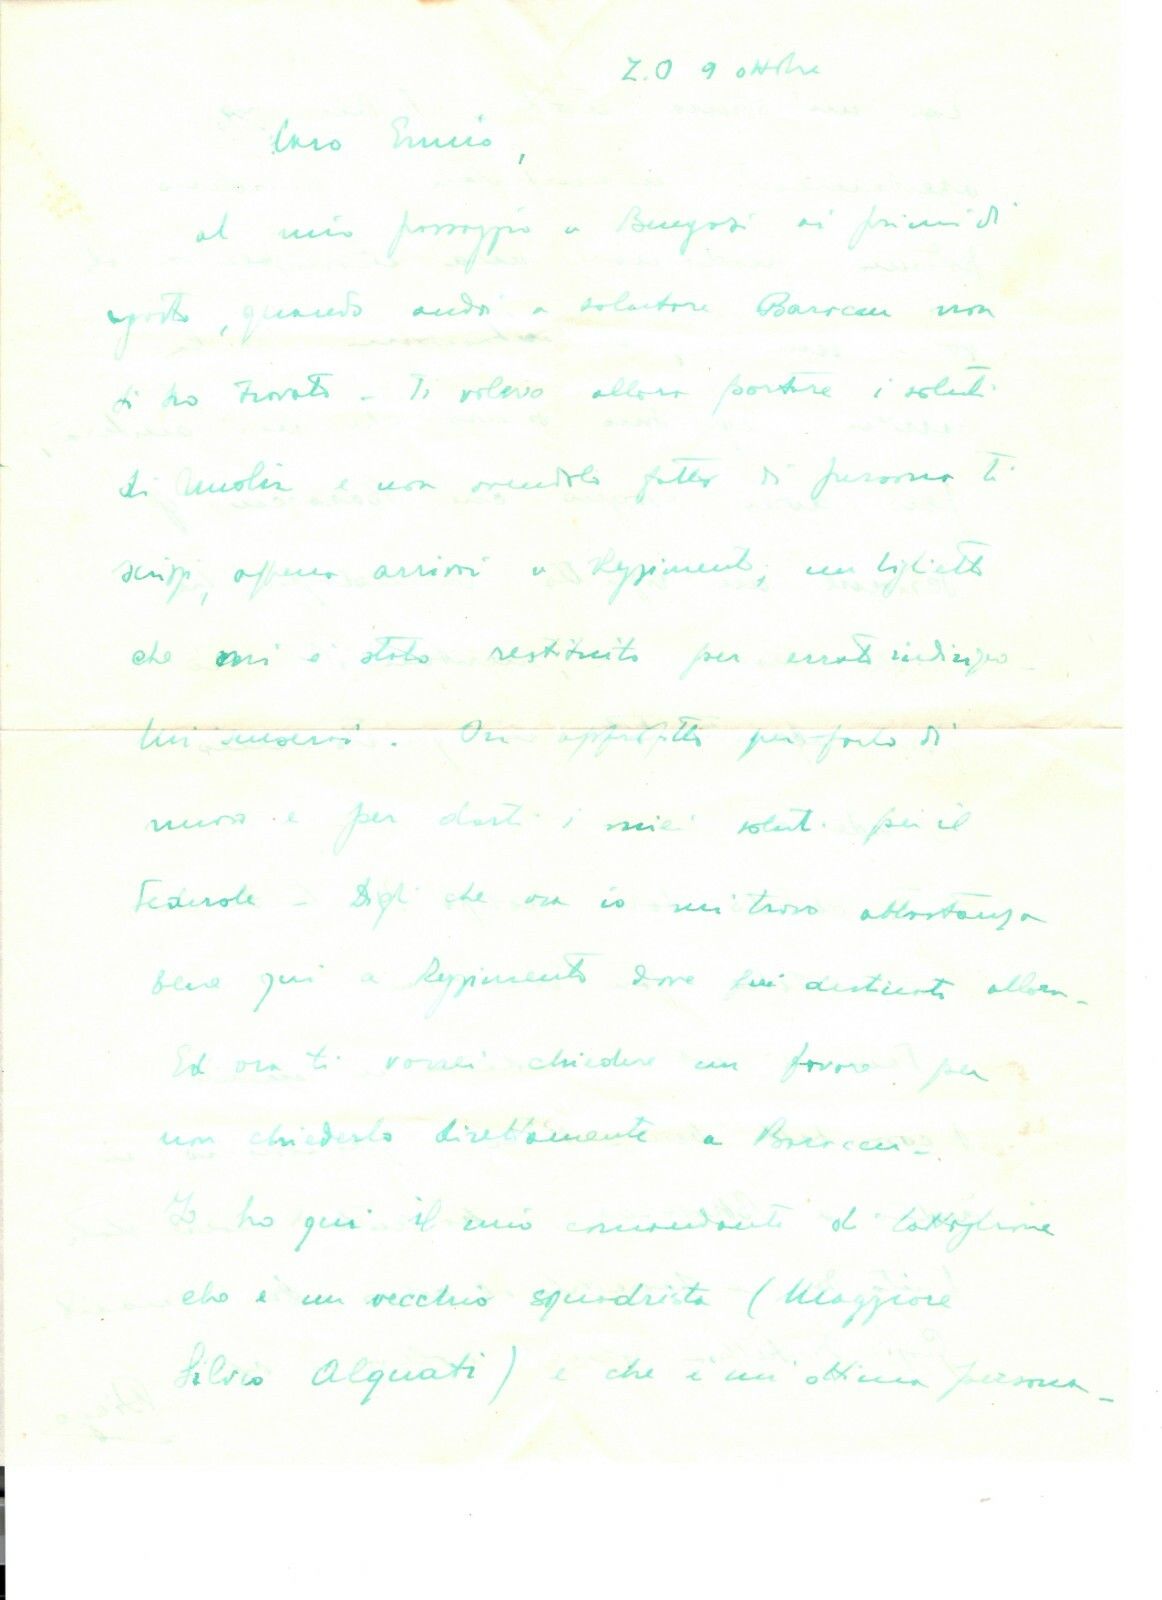 Z.O 9 ottobre
Caro Ennio,
al mio passaggio a Bengasi ai primi di
agosto, quando andai a salutare Baroccu non
ti ho trovato - Ti volevo allora portare i saluti
di e non avendolo fatto di persona ti
scrissi, appena arrivai a Reggimento, un biglietto
che mi è stato restituito per errato indirizzo -
Mi . Ora approfitto per farlo di
nuovo e per darti i miei saluti per il
Federale - Digli che ora io mi trovo abbastanza
bene qui a Reggimento dove fui destinato allora -
Ed ora ti vorrei chiedere un favore per
non chiederlo direttamente a Baroccu -
Io ho qui il mio comandante di battaglione
che è un vecchio squadrista (Maggiore
Silvio Alquati) e che è un'ottima persona -